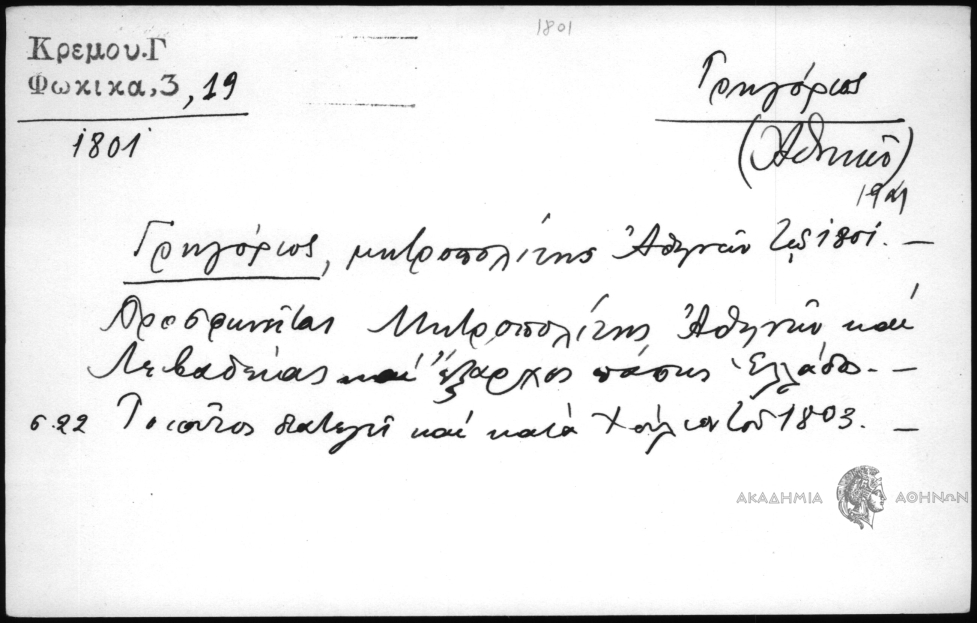 1801
Κρεμου.Γ
Φωκικα,3,19
1801
Γρηγόριος
(Ἀθηνῶν)
Γρηγόριος, μητροπολίτης Ἀθηνῶν τῷ 1801. —
Προσφωνεῖται Μητροπολίτης Ἀθηνῶν καὶ
Λεβαδείας καὶ ἔξαρχος πάσης Ἑλλάδος. —
σ. 22 Τοιοῦτος διατελεῖ καὶ κατὰ Ἰούλιον τοῦ 1803. —
ΑΚΑΔΗΜΙΑ ΑΘΗΝΩΝ